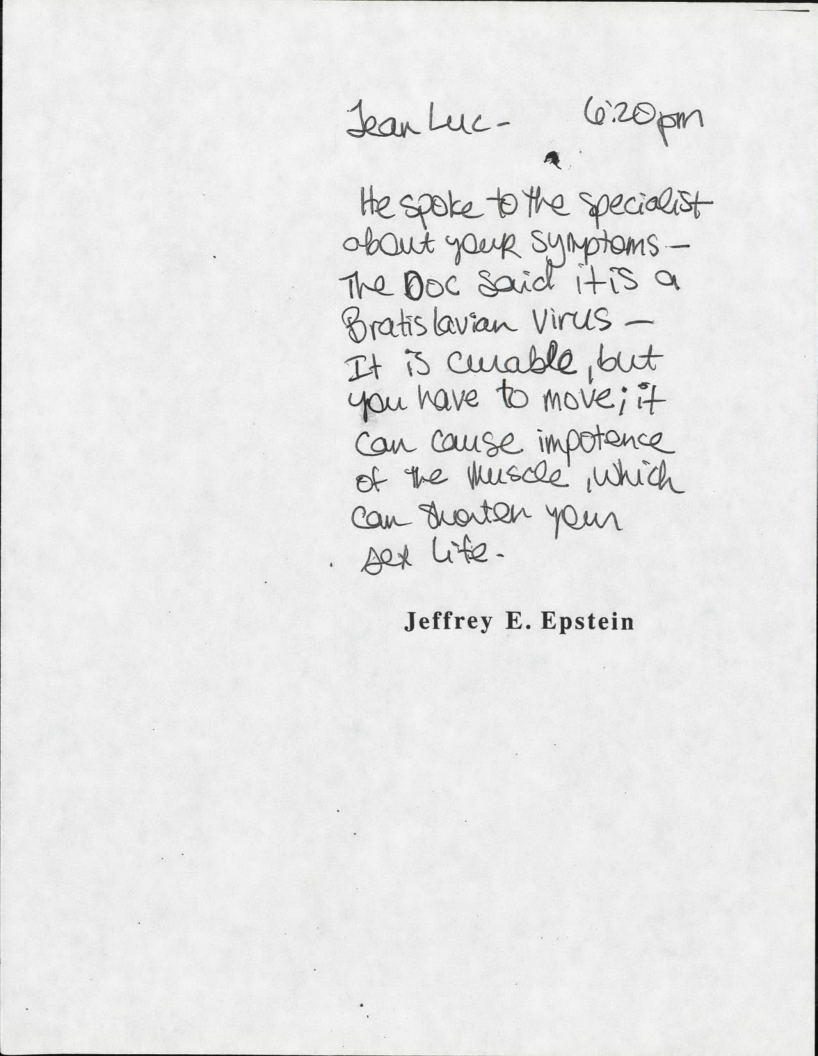 Jean Luc - 6:20pm
He spoke to the specialist
about your symptoms -
The Doc said it is a
Bratislavian Virus -
It is curable, but
you have to move; it
can cause impotence
of the muscle, which
can shorten your
sex life.
Jeffrey E. Epstein